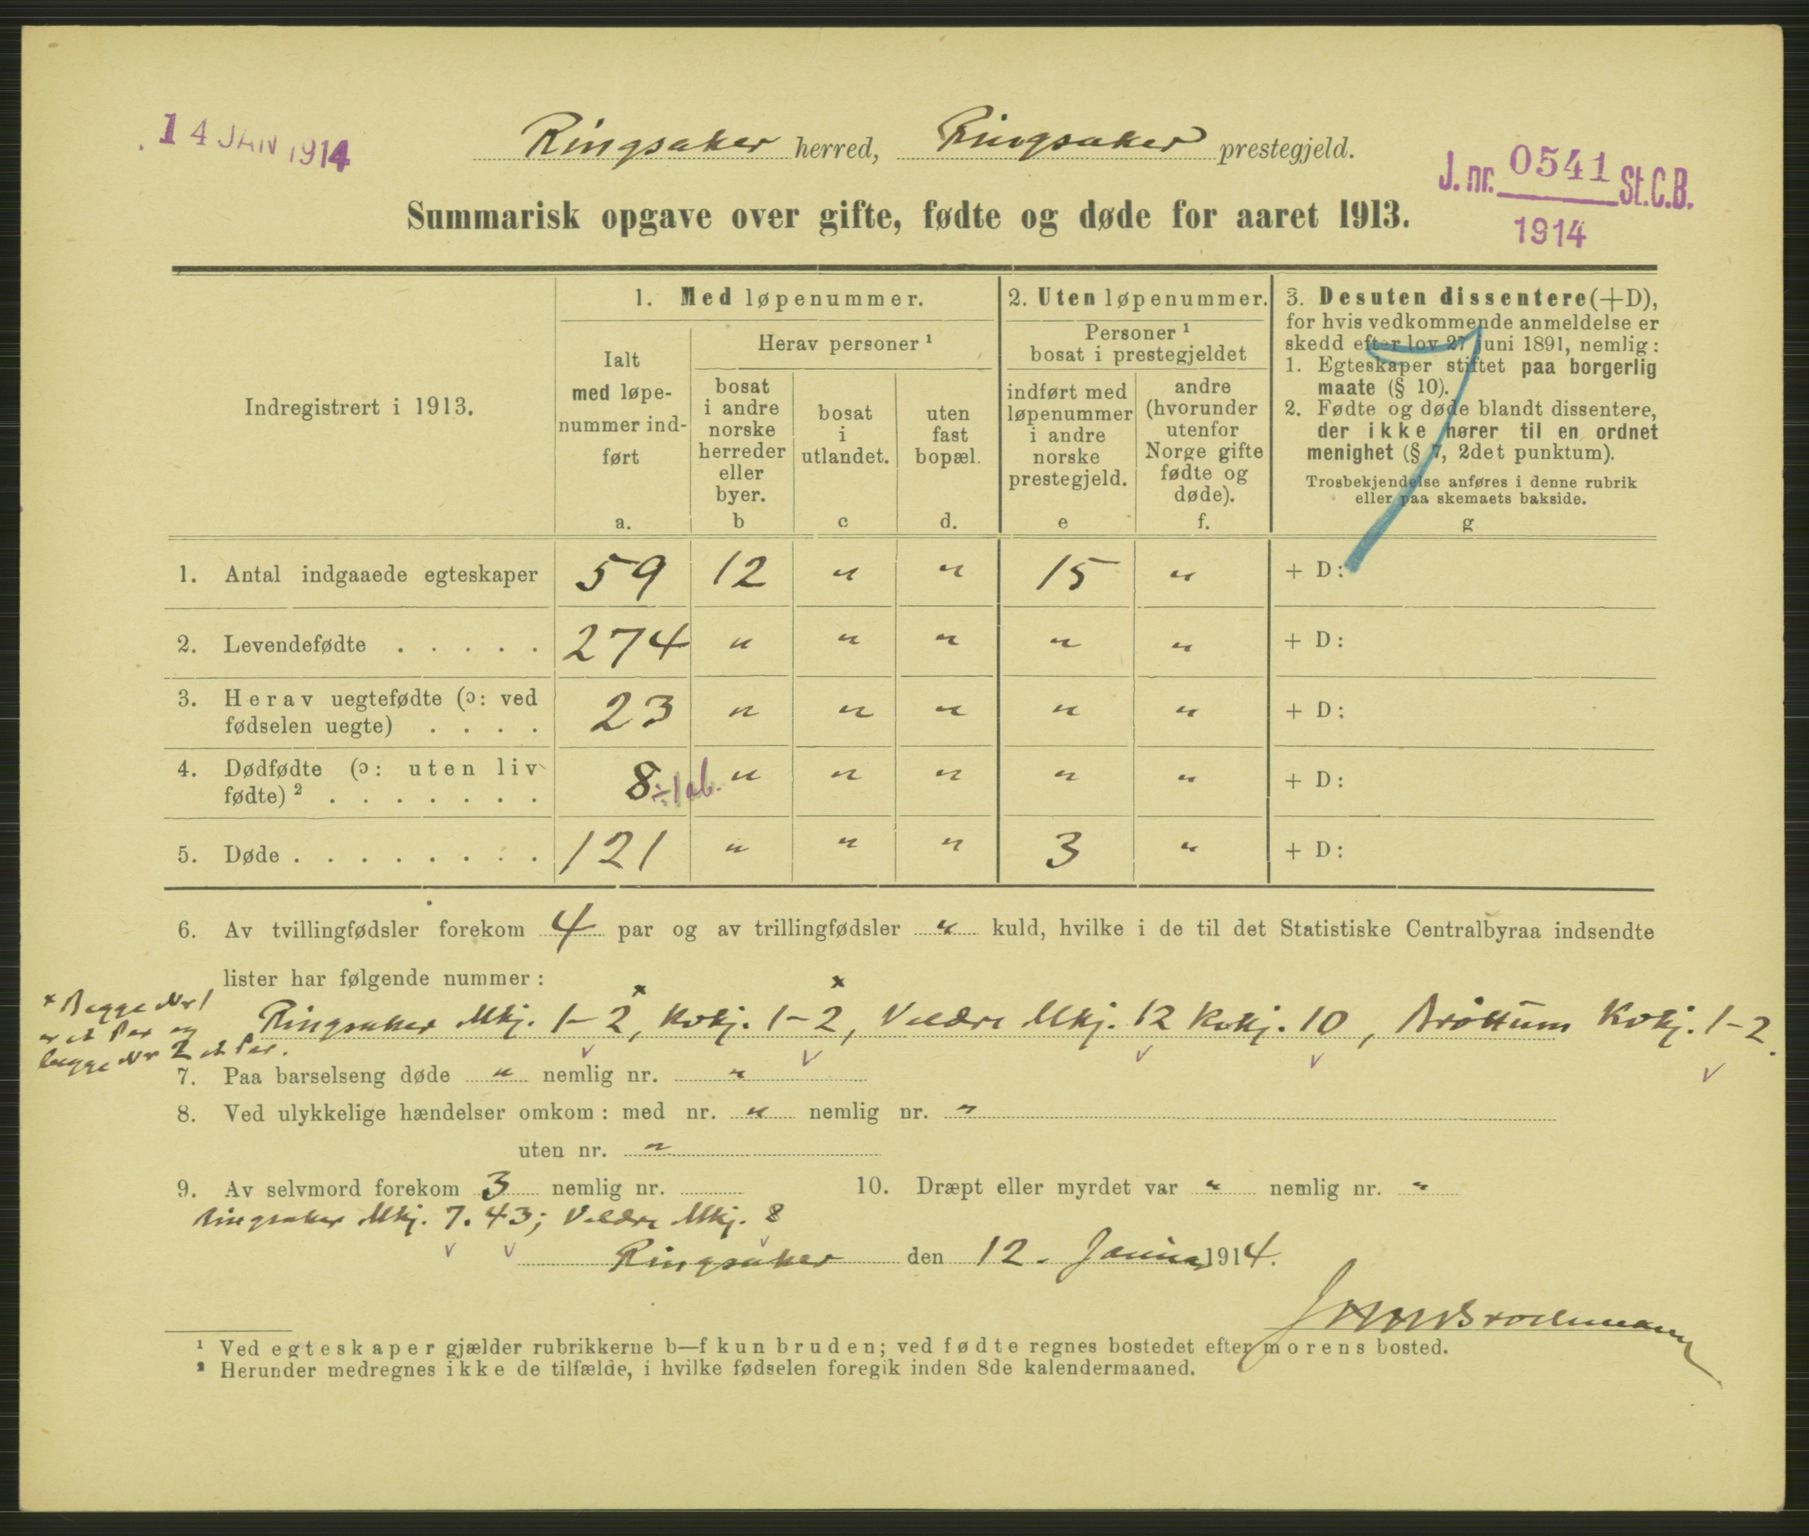 14 JAN 1914
Ringsaker herred, Ringsaker prestegjeld.
J. nr. 0541 St. C. B.
1914
Summarisk opgave over gifte, fødte og døde for aaret 1913.
Indregistrert i 1913.
1. Med løpenummer.
2. Uten løpenummer.
3. Desuten dissentere (+D),
for hvis vedkommende anmeldelse er
skedd efter lov 27 juni 1891, nemlig:
1. Egteskaper stiftet paa borgerlig
maate (§ 10).
2. Fødte og døde blandt dissentere,
der ikke hører til en ordnet
menighet (§ 7, 2det punktum).
Trosbekjendelse anføres i denne rubrik
eller paa skemaets bakside.
g
Ialt
med løpe-
nummer ind-
ført
a.
Herav personer ¹
bosat
i andre
norske
herreder
eller
byer.
b
bosat
i
utlandet.
c
uten
fast
bopæl.
d.
Personer ¹
bosat i prestegjeldet
indført med
løpenummer
i andre
norske
prestegjeld.
e
andre
(hvorunder
utenfor
Norge gifte
fødte og
døde).
f.
1. Antal indgaaede egteskaper 59 12 " " 15 " + D:
2. Levendefødte . . . . . 274 " " " " " + D:
3. Herav uegtefødte (ɔ: ved
fødselen uegte) . . . . 23 " " " " " + D:
4. Dødfødte (ɔ: uten liv
fødte) ² . . . . . . . 8 ÷1 ab. " " " " " + D:
5. Døde . . . . . . . . 121 " " " 3 " + D:
6. Av tvillingfødsler forekom 4 par og av trillingfødsler " kuld, hvilke i de til det Statistiske Centralbyraa indsendte
lister har følgende nummer:
x Begge Nr 1
er et Par og
begge Nr 2 et Par.
Ringsaker Mkj. 1-2 x, Kvkj. 1-2 x, Veldre Mkj. 12 Kvkj. 10, Brøttum Kvkj. 1-2.
7. Paa barselseng døde " nemlig nr. "
8. Ved ulykkelige hændelser omkom: med nr. " nemlig nr. "
uten nr. "
9. Av selvmord forekom 3 nemlig nr.
10. Dræpt eller myrdet var " nemlig nr. "
Ringsaker Mkj. 7. 43; Veldre Mkj. 8
Ringsaker den 12. Januar 1914.
¹ Ved egteskaper gjælder rubrikkerne b—f kun bruden; ved fødte regnes bostedet efter morens bosted.
² Herunder medregnes ikke de tilfælde, i hvilke fødselen foregik inden 8de kalendermaaned.